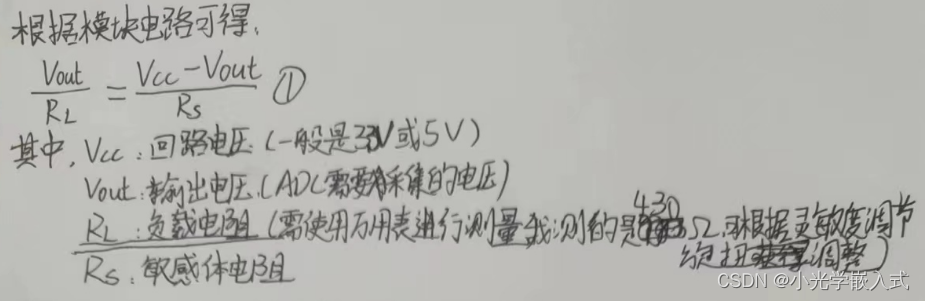 根据模块电路可得,
Vout/RL = (Vcc-Vout)/Rs ①
其中, Vcc: 回路电压 (一般是3V或5V)
Vout: 输出电压 (ADC需要采集的电压)
RL: 负载电阻 (需使用万用表进行测量我测的是430Ω,可根据灵敏度调节旋钮调整)
Rs: 敏感体电阻
CSDN @小光学嵌入式